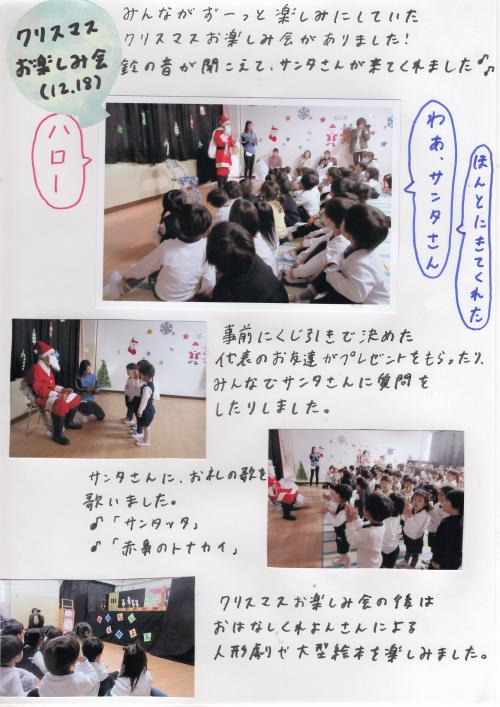 クリスマス
お楽しみ会
(12.18)
みんながずーっと楽しみにしていた
クリスマスお楽しみ会がありました!
鈴の音が聞こえて、サンタさんが来てくれました♪♪
ハロー
わあ、サンタさん
ほんとにきてくれた
事前にくじ引きで決めた
代表のお友達がプレゼントをもらったり、
みんなでサンタさんに質問を
したりしました。
サンタさんに、お礼の歌を
歌いました。
♪「サンタッタ」
♪「赤鼻のトナカイ」
クリスマスお楽しみ会の後は
おはなしくれよんさんによる
人形劇や大型絵本を楽しみました。